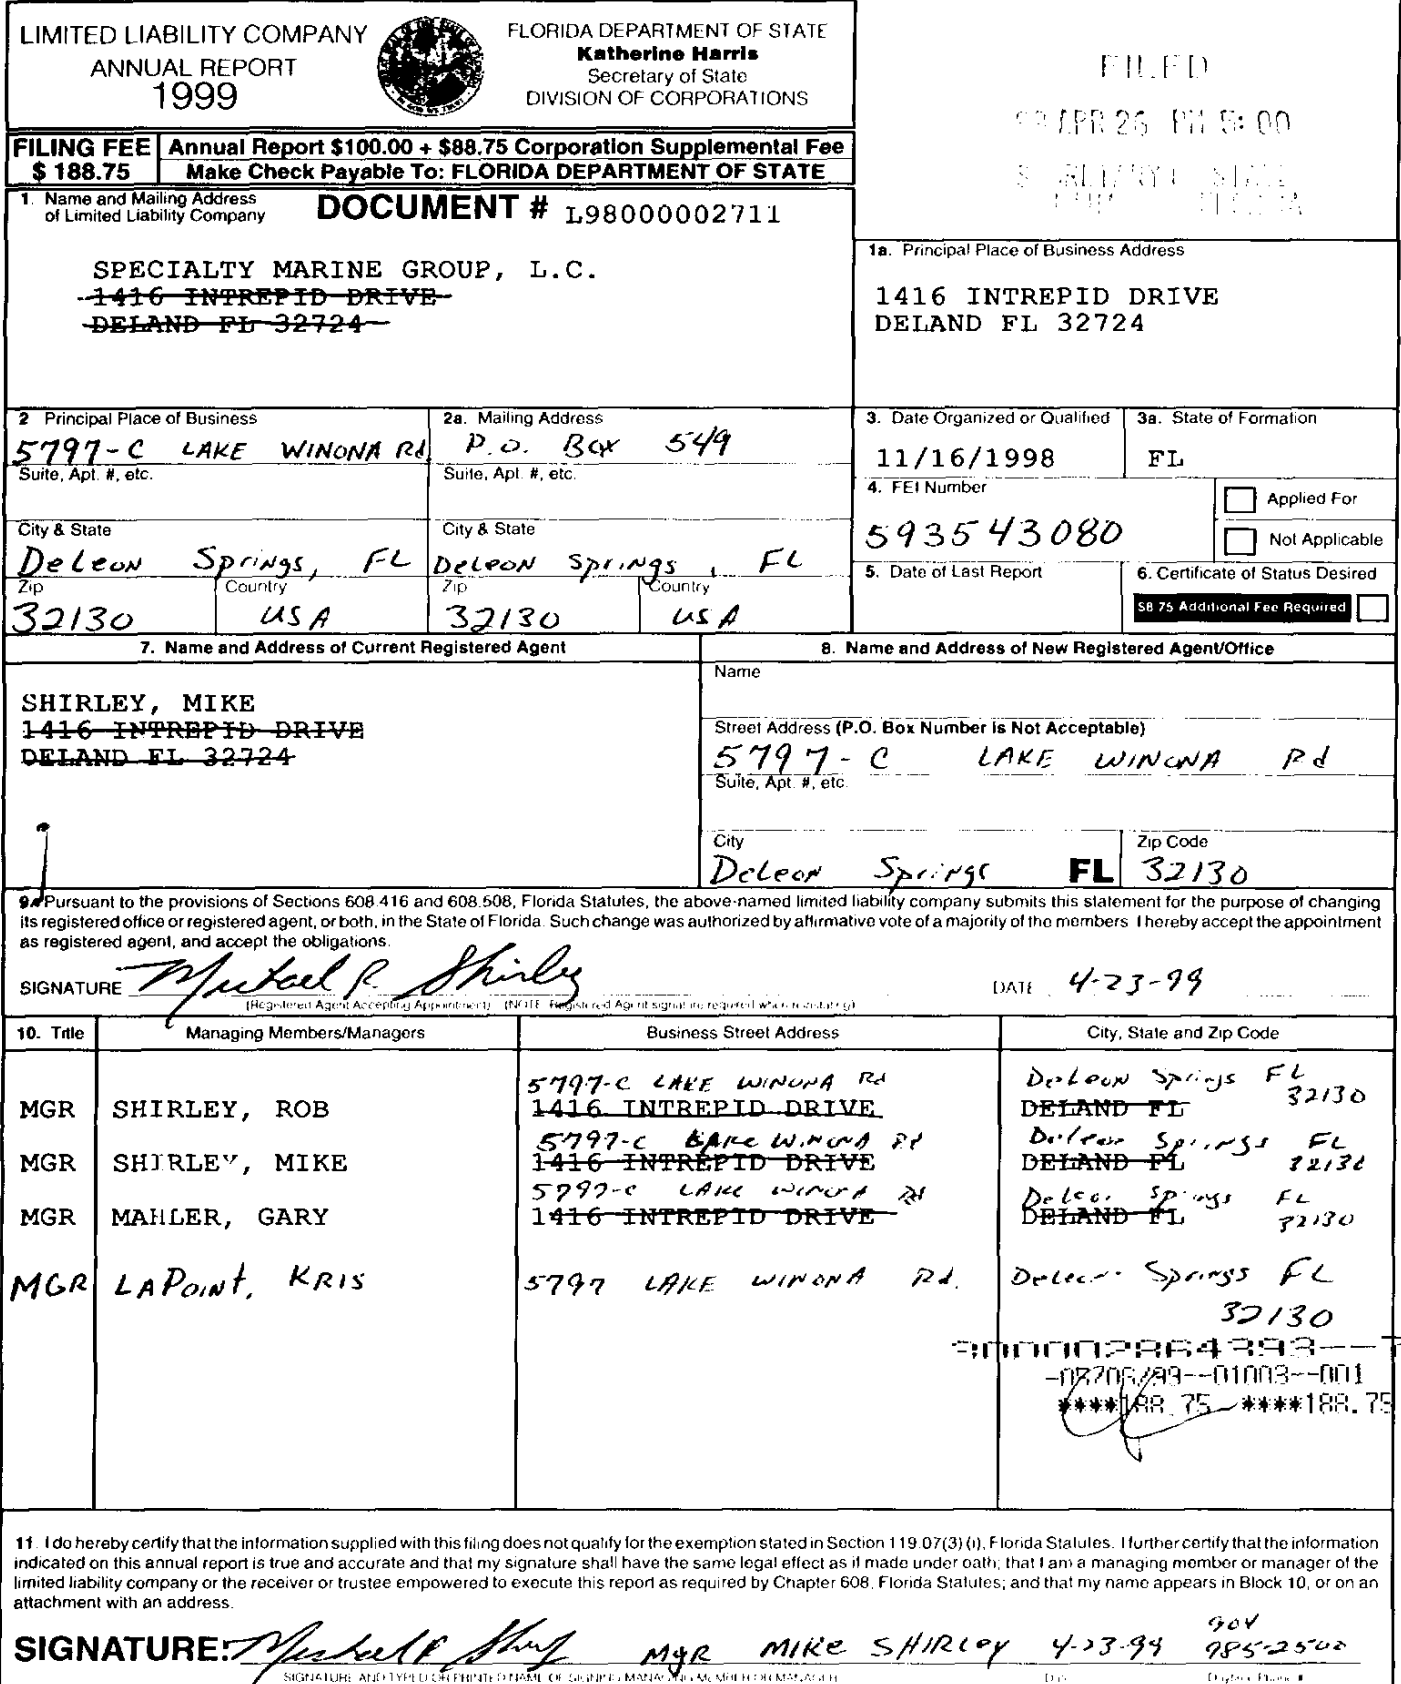 LIMITED LIABILITY COMPANY
ANNUAL REPORT
1999
FLORIDA DEPARTMENT OF STATE
Katherine Harris
Secretary of State
DIVISION OF CORPORATIONS
FILED
APR 26 PM 5:00
FILING FEE
$ 188.75
Annual Report $100.00 + $88.75 Corporation Supplemental Fee
Make Check Payable To: FLORIDA DEPARTMENT OF STATE
1. Name and Mailing Address
of Limited Liability Company
DOCUMENT # L98000002711
SPECIALTY MARINE GROUP, L.C.
1416 INTREPID DRIVE
DELAND FL 32724
1a. Principal Place of Business Address
1416 INTREPID DRIVE
DELAND FL 32724
2 Principal Place of Business
5797-C LAKE WINONA Rd
Suite, Apt. #, etc.
City & State
DeLeon Springs, FL
Zip
32130
Country
USA
2a. Mailing Address
P.O. Box 549
Suite, Apt. #, etc.
City & State
DeLeon Springs, FL
Zip
32130
Country
USA
3. Date Organized or Qualified
11/16/1998
3a. State of Formation
FL
4. FEI Number
593543080
Applied For
Not Applicable
5. Date of Last Report
6. Certificate of Status Desired
$8 75 Additional Fee Required
7. Name and Address of Current Registered Agent
SHIRLEY, MIKE
1416 INTREPID DRIVE
DELAND FL 32724
8. Name and Address of New Registered Agent/Office
Name
Street Address (P.O. Box Number is Not Acceptable)
5797-C LAKE WINONA Rd
Suite, Apt. #, etc.
City
DeLeon Springs FL
Zip Code
32130
9. Pursuant to the provisions of Sections 608.416 and 608.508, Florida Statutes, the above-named limited liability company submits this statement for the purpose of changing
its registered office or registered agent, or both, in the State of Florida. Such change was authorized by affirmative vote of a majority of the members I hereby accept the appointment
as registered agent, and accept the obligations.
SIGNATURE Michael R. Shirley
(Registered Agent Accepting Appointment) (NOTE: Registered Agent signature required when reinstating)
DATE 4-23-99
10. Title Managing Members/Managers Business Street Address City, State and Zip Code
5797-C LAKE WINONA Rd DeLeon Springs FL
32130
MGR SHIRLEY, ROB 1416 INTREPID DRIVE DELAND FL
5797-C LAKE WINONA Rd DeLeon Springs FL
32130
MGR SHIRLEY, MIKE 1416 INTREPID DRIVE DELAND FL
5797-C LAKE WINONA Rd DeLeon Springs FL
32130
MGR MAHLER, GARY 1416 INTREPID DRIVE DELAND FL
MGR LAPOINT, KRIS 5797 LAKE WINONA Rd. DeLeon Springs FL
32130
--01003--001
****188.75 ****188.75
11. I do hereby certify that the information supplied with this filing does not qualify for the exemption stated in Section 119.07(3)(i), Florida Statutes. I further certify that the information
indicated on this annual report is true and accurate and that my signature shall have the same legal effect as if made under oath; that I am a managing member or manager of the
limited liability company or the receiver or trustee empowered to execute this report as required by Chapter 608, Florida Statutes; and that my name appears in Block 10, or on an
attachment with an address.
904
SIGNATURE: Michael R Shirley MgR MIKE SHIRLEY 4-23-99 985-2500
SIGNATURE AND TYPED OR PRINTED NAME OF SIGNING MANAGING MEMBER OR MANAGER Date Daytime Phone #